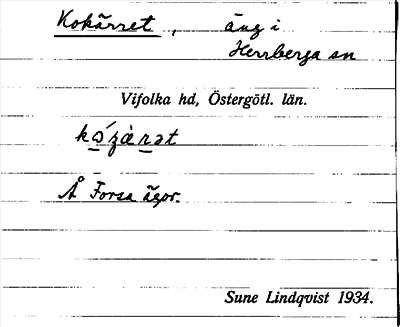 Kokärret, äng i
Herrberga sn
Vifolka hd, Östergötl. län.
Å Forsa ägor.
Sune Lindqvist 1934.